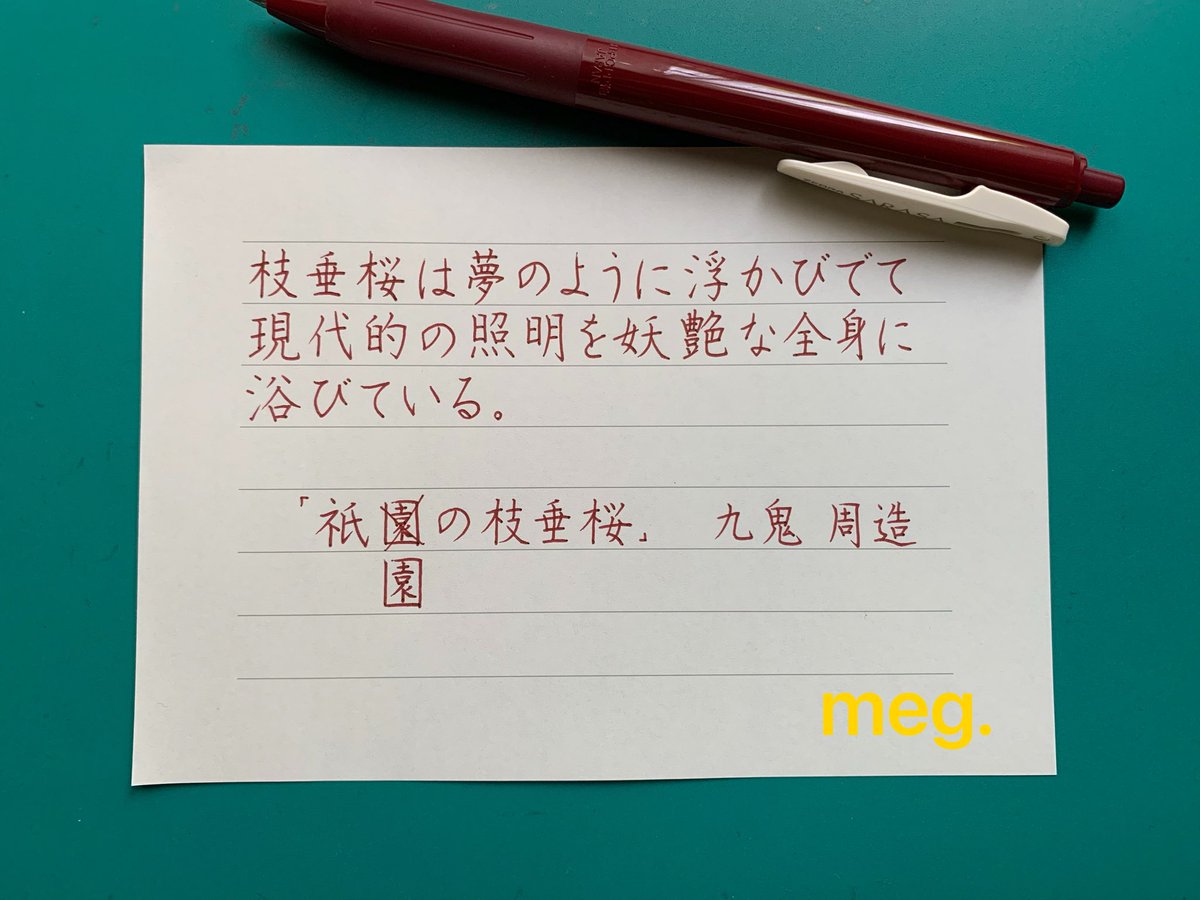 ZEBRA SARASA
枝垂桜は夢のように浮かびでて
現代的の照明を妖艶な全身に
浴びている。
「祇園の枝垂桜」 九鬼 周造
園
meg.